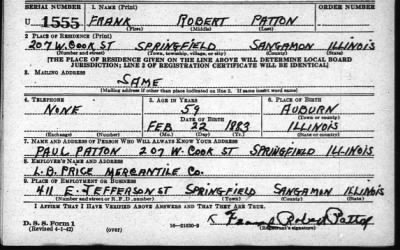 SERIAL NUMBER 1. NAME (Print) ORDER NUMBER
U 1555 FRANK ROBERT PATTON
(First) (Middle) (Last)
2. PLACE OF RESIDENCE (Print)
207 W. COOK ST SPRINGFIELD SANGAMON ILLINOIS
(Number and street) (Town, township, village, or city) (County) (State)
[THE PLACE OF RESIDENCE GIVEN ON THE LINE ABOVE WILL DETERMINE LOCAL BOARD
JURISDICTION; LINE 2 OF REGISTRATION CERTIFICATE WILL BE IDENTICAL]
3. MAILING ADDRESS
SAME
(Mailing address if other than place indicated on line 2. If same insert word same)
4. TELEPHONE 5. AGE IN YEARS 6. PLACE OF BIRTH
NONE 59 AUBURN
DATE OF BIRTH (Town or county)
FEB 22 1883 ILLINOIS
(Exchange) (Number) (Mo.) (Day) (Yr.) (State or country)
7. NAME AND ADDRESS OF PERSON WHO WILL ALWAYS KNOW YOUR ADDRESS
PAUL PATTON 207 W. COOK ST SPRINGFIELD ILLINOIS
8. EMPLOYER'S NAME AND ADDRESS
L.B. PRICE MERCANTILE CO.
9. PLACE OF EMPLOYMENT OR BUSINESS
411 E. JEFFERSON ST SPRINGFIELD SANGAMON ILLINOIS
(Number and street or R. F. D. number) (Town) (County) (State)
I AFFIRM THAT I HAVE VERIFIED ABOVE ANSWERS AND THAT THEY ARE TRUE.
D. S. S. Form 1 Frank Robert Patton
(Revised 4-1-42) (over) 16—21630-2 (Registrant's signature)